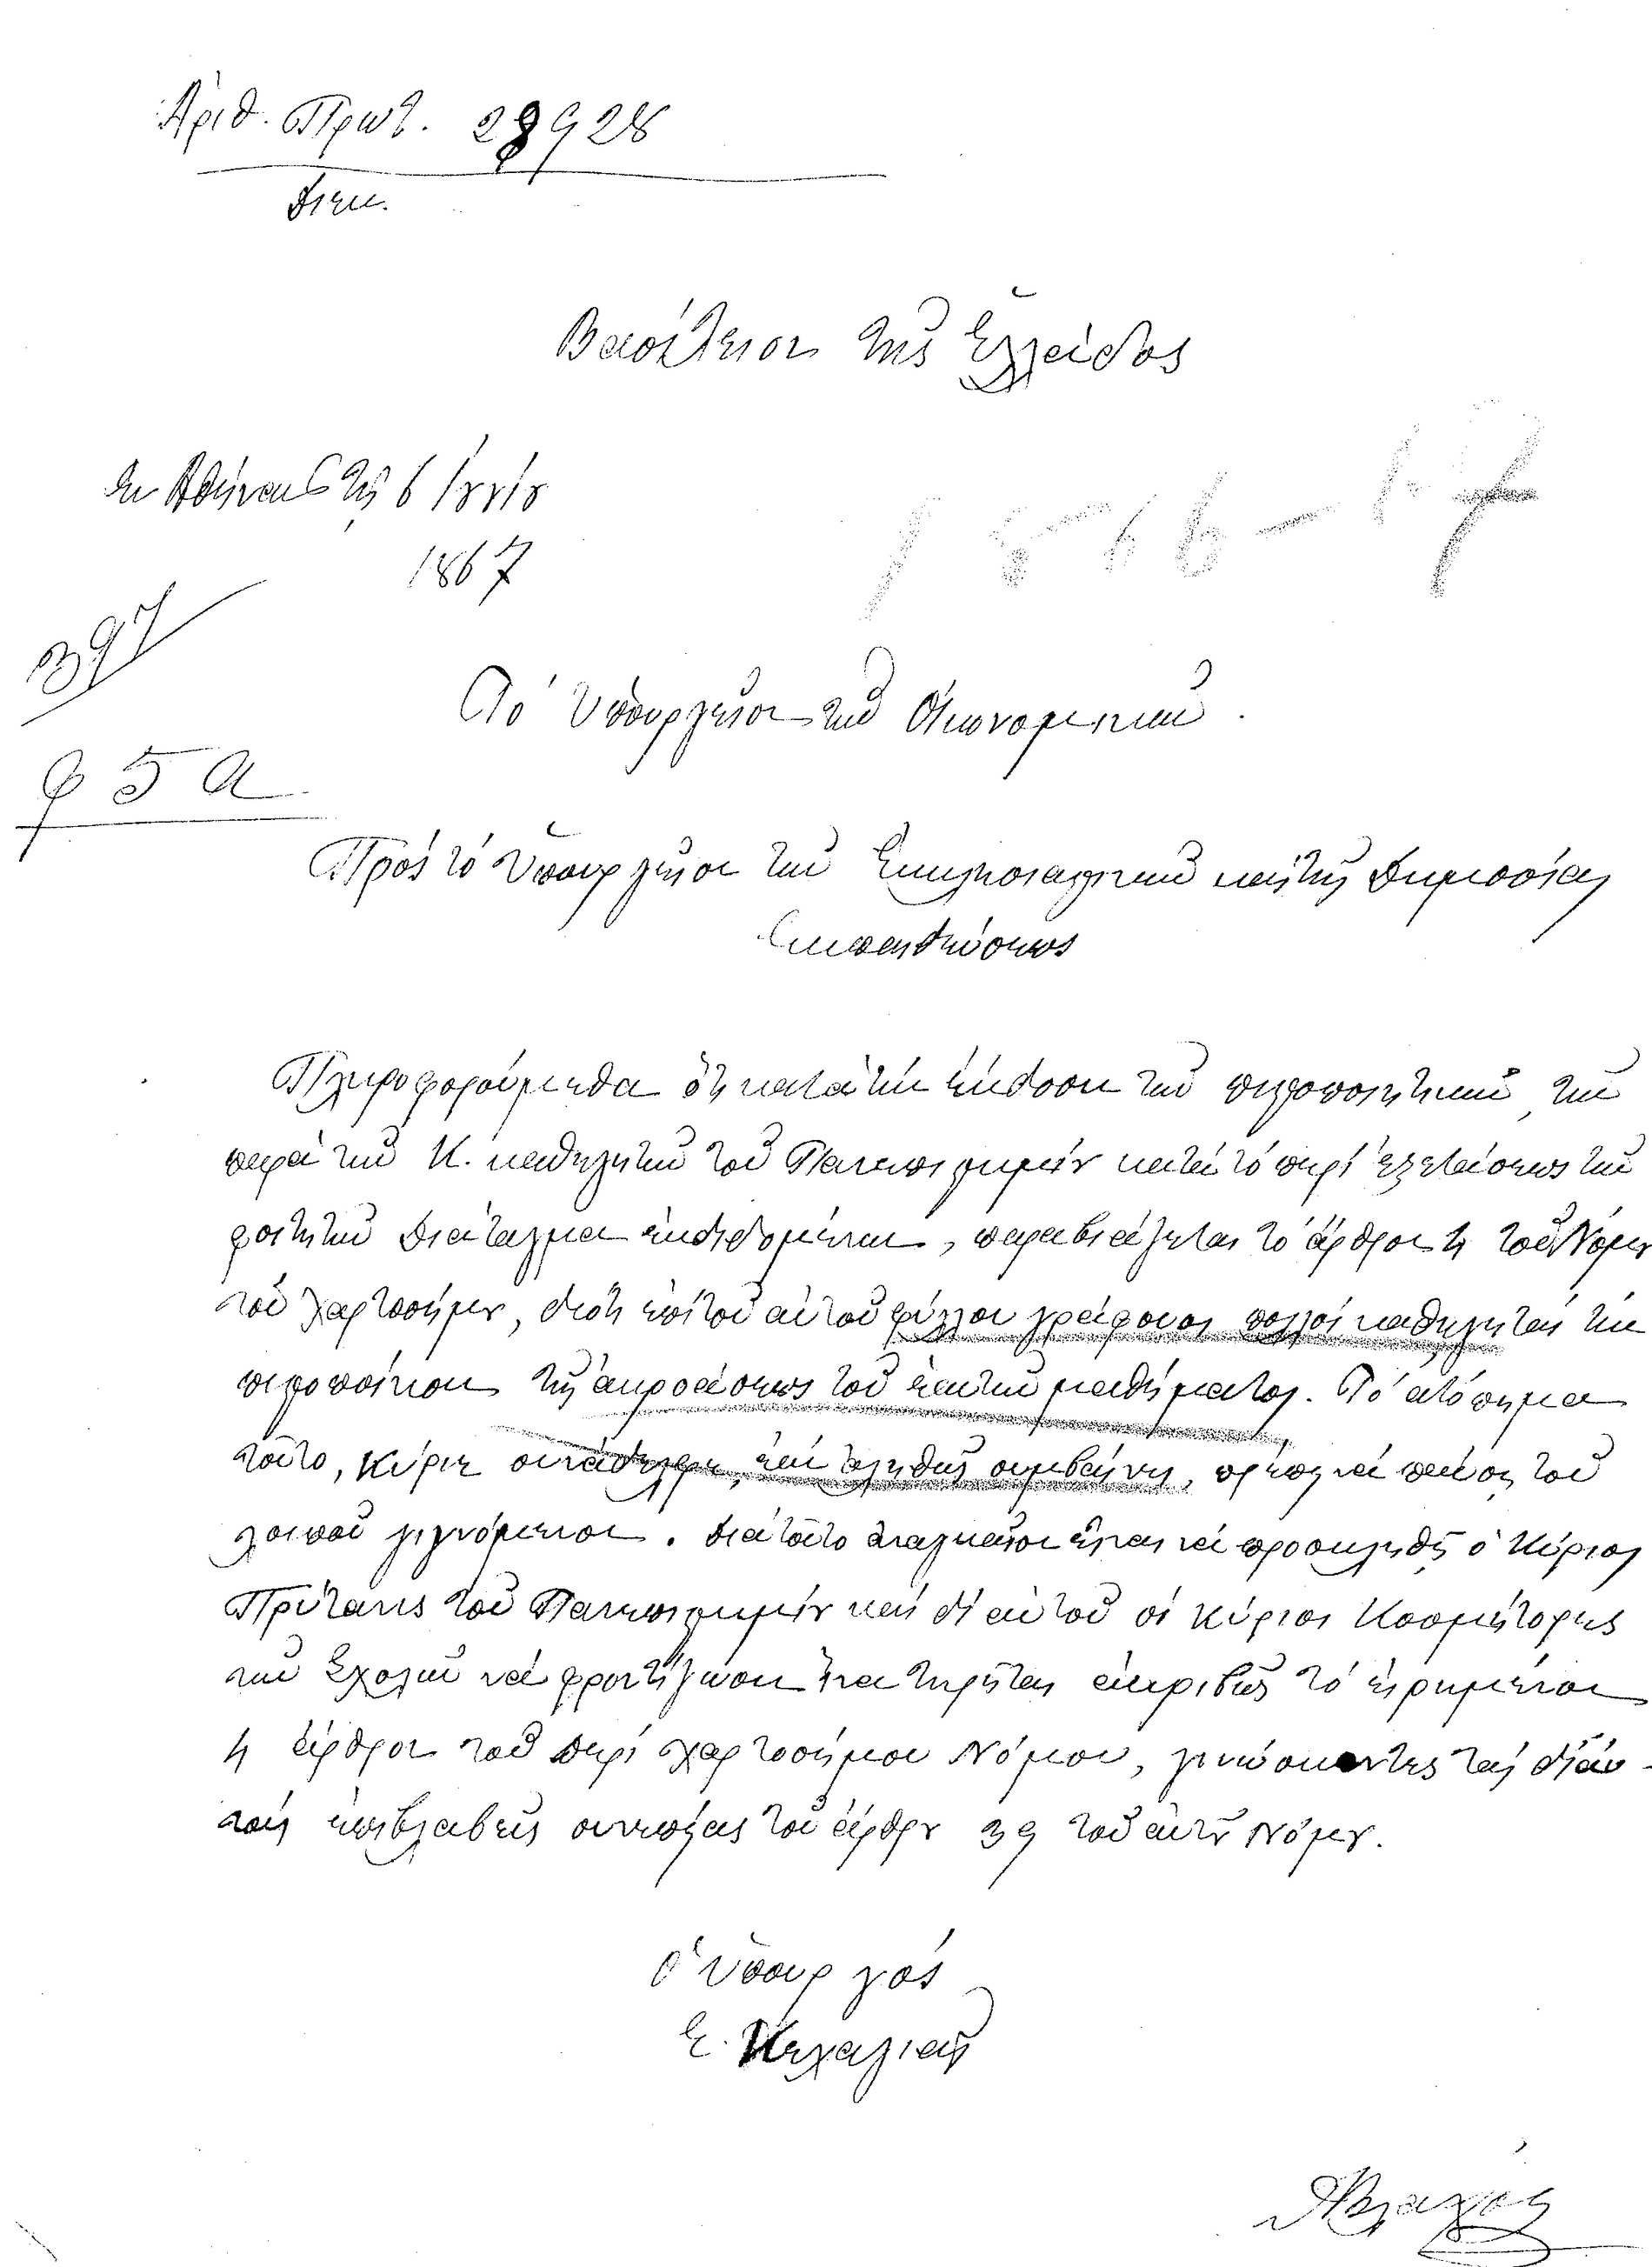 Ἀριθ. Πρωτ. 28928
Διεκ.
Βασίλειον τῆς Ἑλλάδος
Ἐν Ἀθήναις τῇ 6 Ἰουνίου
1867
397
φ 5 α
Τὸ Ὑπουργεῖον τῶν Οἰκονομικῶν.
Πρὸς τὸ Ὑπουργεῖον τῶν Ἐκκλησιαστικῶν καὶ τῆς Δημοσίας
Ἐκπαιδεύσεως
Πληροφορούμεθα ὅτι κατὰ τὴν ἔκδοσιν τῶν πιστοποιητικῶν, τῶν
παρὰ τῶν Κ. καθηγητῶν τοῦ Πανεπιστημίου κατὰ τὸ περὶ ἐξετάσεως τῶν
φοιτητῶν Διάταγμα ἐκδιδομένων, παραβιάζεται τὸ ἄρθρον 4 τοῦ Νόμου
τοῦ χαρτοσήμου, διότι ἐπὶ τοῦ αὐτοῦ φύλλου γράφουσι πολλοὶ καθηγηταὶ τὴν
πιστοποίησιν τῆς ἀκροάσεως τοῦ ἑαυτῶν μαθήματος. Τὸ ἀτόπημα
τοῦτο, Κύριε συνάδελφε, ἐὰν ἀληθῶς συμβαίνῃ, πρέπει νὰ παύσῃ τοῦ
λοιποῦ γιγνόμενον. Διὰ τοῦτο ἀναγκαῖον εἶναι νὰ προσκληθῇ ὁ Κύριος
Πρύτανις τοῦ Πανεπιστημίου καὶ δι' αὐτοῦ οἱ Κύριοι Κοσμήτορες
τῶν Σχολῶν νὰ φροντίζωσιν ἵνα τηρῆται ἀκριβῶς τὸ εἰρημένον
4 ἄρθρον τοῦ περὶ χαρτοσήμου Νόμου, γινώσκοντες τὰς δι' αὐ-
τοὺς ἐπιβλαβεῖς συνεπείας τοῦ ἄρθρου 39 τοῦ αὐτοῦ Νόμου.
Ὁ Ὑπουργός
Ε. Κεχαγιᾶς